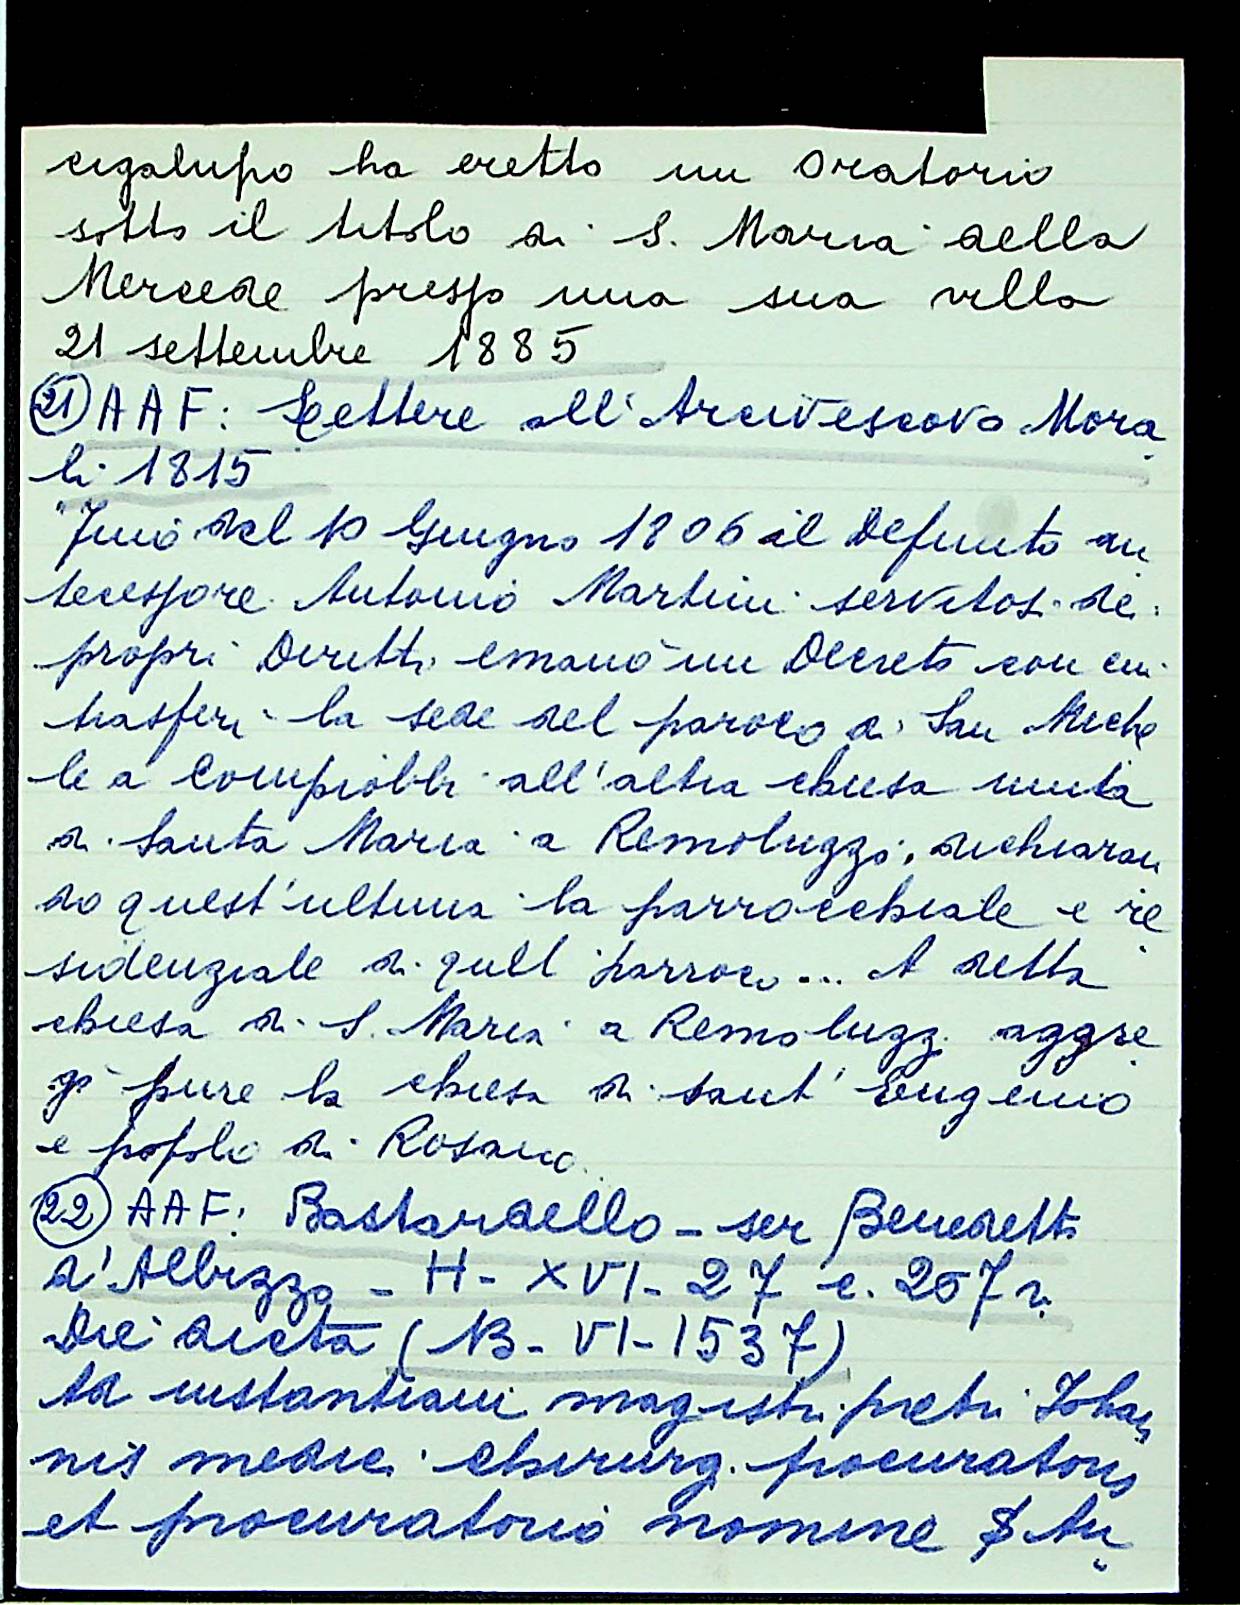 cigalupo ha eretto un oratorio
sotto il titolo di S. Maria della
Mercede presso una sua villa
21 settembre 1885
21) AAF: Lettere all'Arcivescovo Mora
li 1815
Fino dal 10 Giugno 1806 il Defunto an
tecessore Antonio Martini servitosi dei
propri Diritti emanò un Decreto con cui
trasferì la sede del paroco di San Miche
le a Compiobbi all'altra chiesa unita
di Santa Maria a Remoluzzo, dichiaran
do quest'ultima la parrocchiale e re
sidenziale di quell parroco... A detta
chiesa di S. Maria a Remoluzz. aggre
gò pure la chiesa di Sant'Eugenio
e popolo di Rosano
22) AAF: Bastardello - ser Benedetto
d'Albizzo - H - XVI - 27 c. 207 r.
Die dicta (13 - VI - 1537)
Ad instantiam magistri petri Johan
nis medici chirurg. procuratoris
et procuratorio nomine